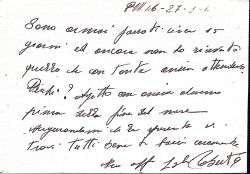 PM 16-27-3-
Sono ormai passati circa 15
giorni ed ancora non ho ricevuto
quello che con tanta ansia attendevo
Perché? Aspetto con ansia almeno
prima della fine del mese
la presente vi
trovi tutti bene vi bacio caramente